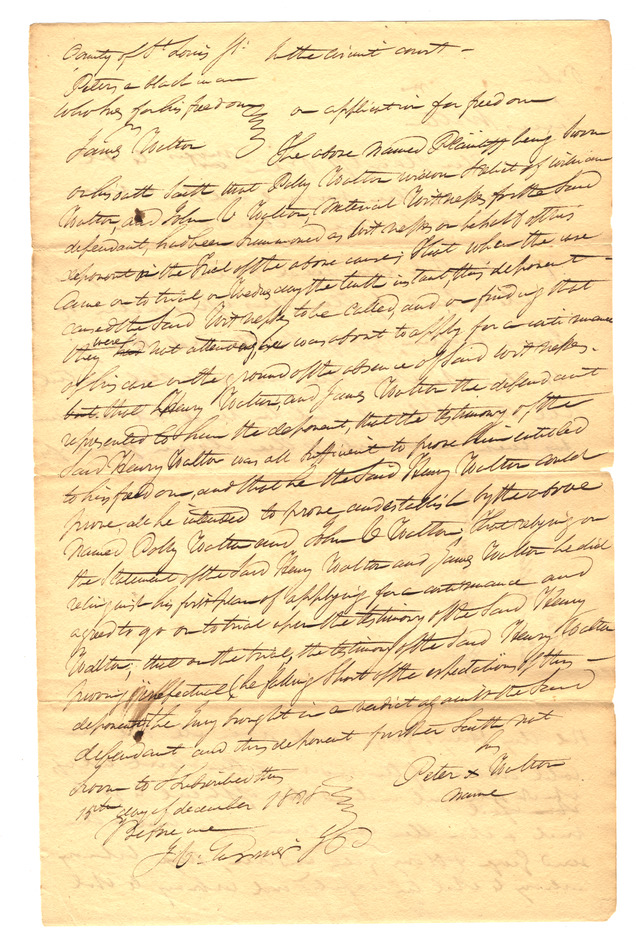 County of St Louis Ss. In the circuit court –
Peter a black man
who sues for his freedom
vs
on application for freedom
James Walton
The above named Plaintiff being Sworn
on his oath Saith that Polly Walton widow &
Walton, and John C Walton, material Witnesses for the Said
defendant, had been summoned as Witnesses on behalf of this
deponent in the trial of the above cause; That when the case
came on to trial on Wednesday the tenth instant, this deponent –
caused the Said Witnesses to be called, and on finding that
they were not attending, he was about to apply for a continuance
of his case on the ground of the absence of Said Witnesses.
but that Henry Walton, and James Walton the defendant
represented to him the deponent, that the testimony of the
Said Henry Walton was all sufficient to prove him entitled
to his freedom, and that he the Said Henry Walton could
prove all he intended to prove and establish by the above
named Polly Walton and John C Walton; That relying on
the Statement of the Said Henry Walton and James Walton he did
relinquish his first plan of applying for a continuance and
agreed to go on to trial upon the testimony of the Said Henry
Walton; that on the trial, the testimony of the Said Henry Walton
proving ineffectual, he falling Short of the expectations of this –
deponent, the Jury brought in a verdict against the Said
defendant and this deponent further Saith not
Sworn to & Subscribed this
15th day of december 1828
Before me
Peter x Walton
name
J P